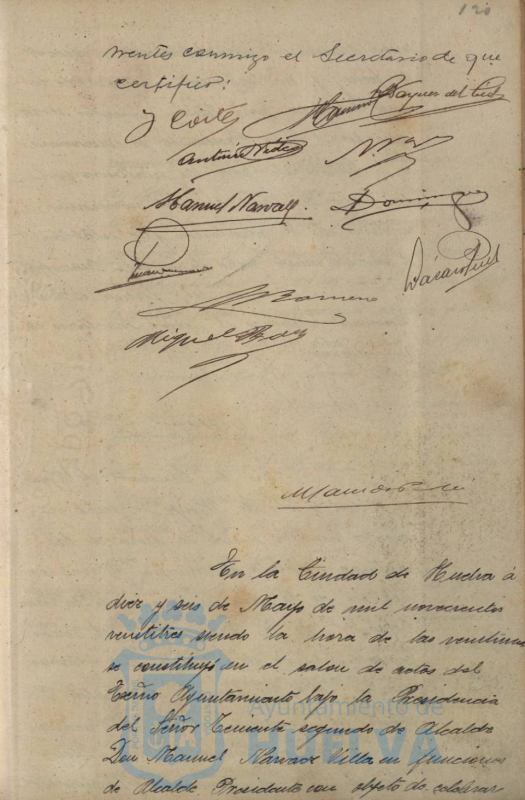 120
mentes conmigo el Secretario de que
certifico:
J Cortés
Antonio
Manuel Narvaez
Domínguez
Lázaro
A Romero
Miguel
En la Ciudad de Huelva á
diez y seis de Mayo de mil novecientos
veintitres siendo la hora de las veintiuna
se constituyó en el salon de actos del
Excmo Ayuntamiento bajo la Presidencia
del Señor Teniente segundo de Alcalde
Don Manuel Narvaez Villa en funciones
de Alcalde Presidente con objeto de celebrar
Ayuntamiento de
HUELVA